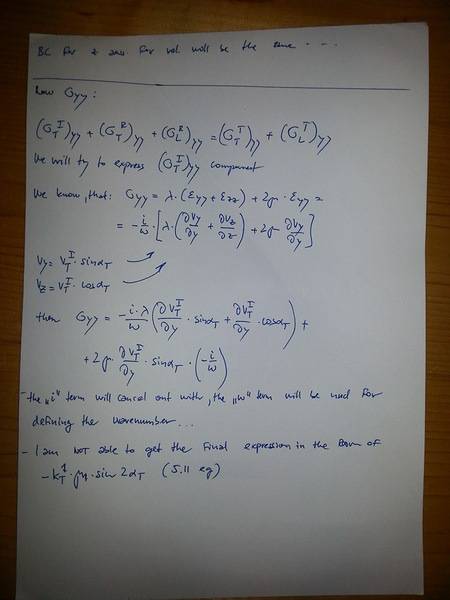 BC for z axis. For vel. will be the same - - .
Now σyy:
(σ_T^I)yy + (σ_T^R)yy + (σ_L^R)yy = (σ_T^T)yy + (σ_L^T)yy
We will try to express (σ_T^I)yy component
We know, that: σyy = λ·(εyy + εzz) + 2μ·εyy =
= -i/ω·[λ·(∂Vy/∂y + ∂Vz/∂z) + 2μ ∂Vy/∂y]
Vy = V_T^I·sinα_T
Vz = V_T^I·cosα_T
then σyy = -i·λ/ω (∂V_T^I/∂y·sinα_T + ∂V_T^I/∂y·cosα_T) +
+ 2μ·∂V_T^I/∂y·sinα_T·(-i/ω)
- the „i" term will cancel out with, the „ω" term will be used for
defining the wavenumber...
- I am NOT able to get the final expression in the form of
-k_T^1·μ1·sin2α_T (5.11 eq)